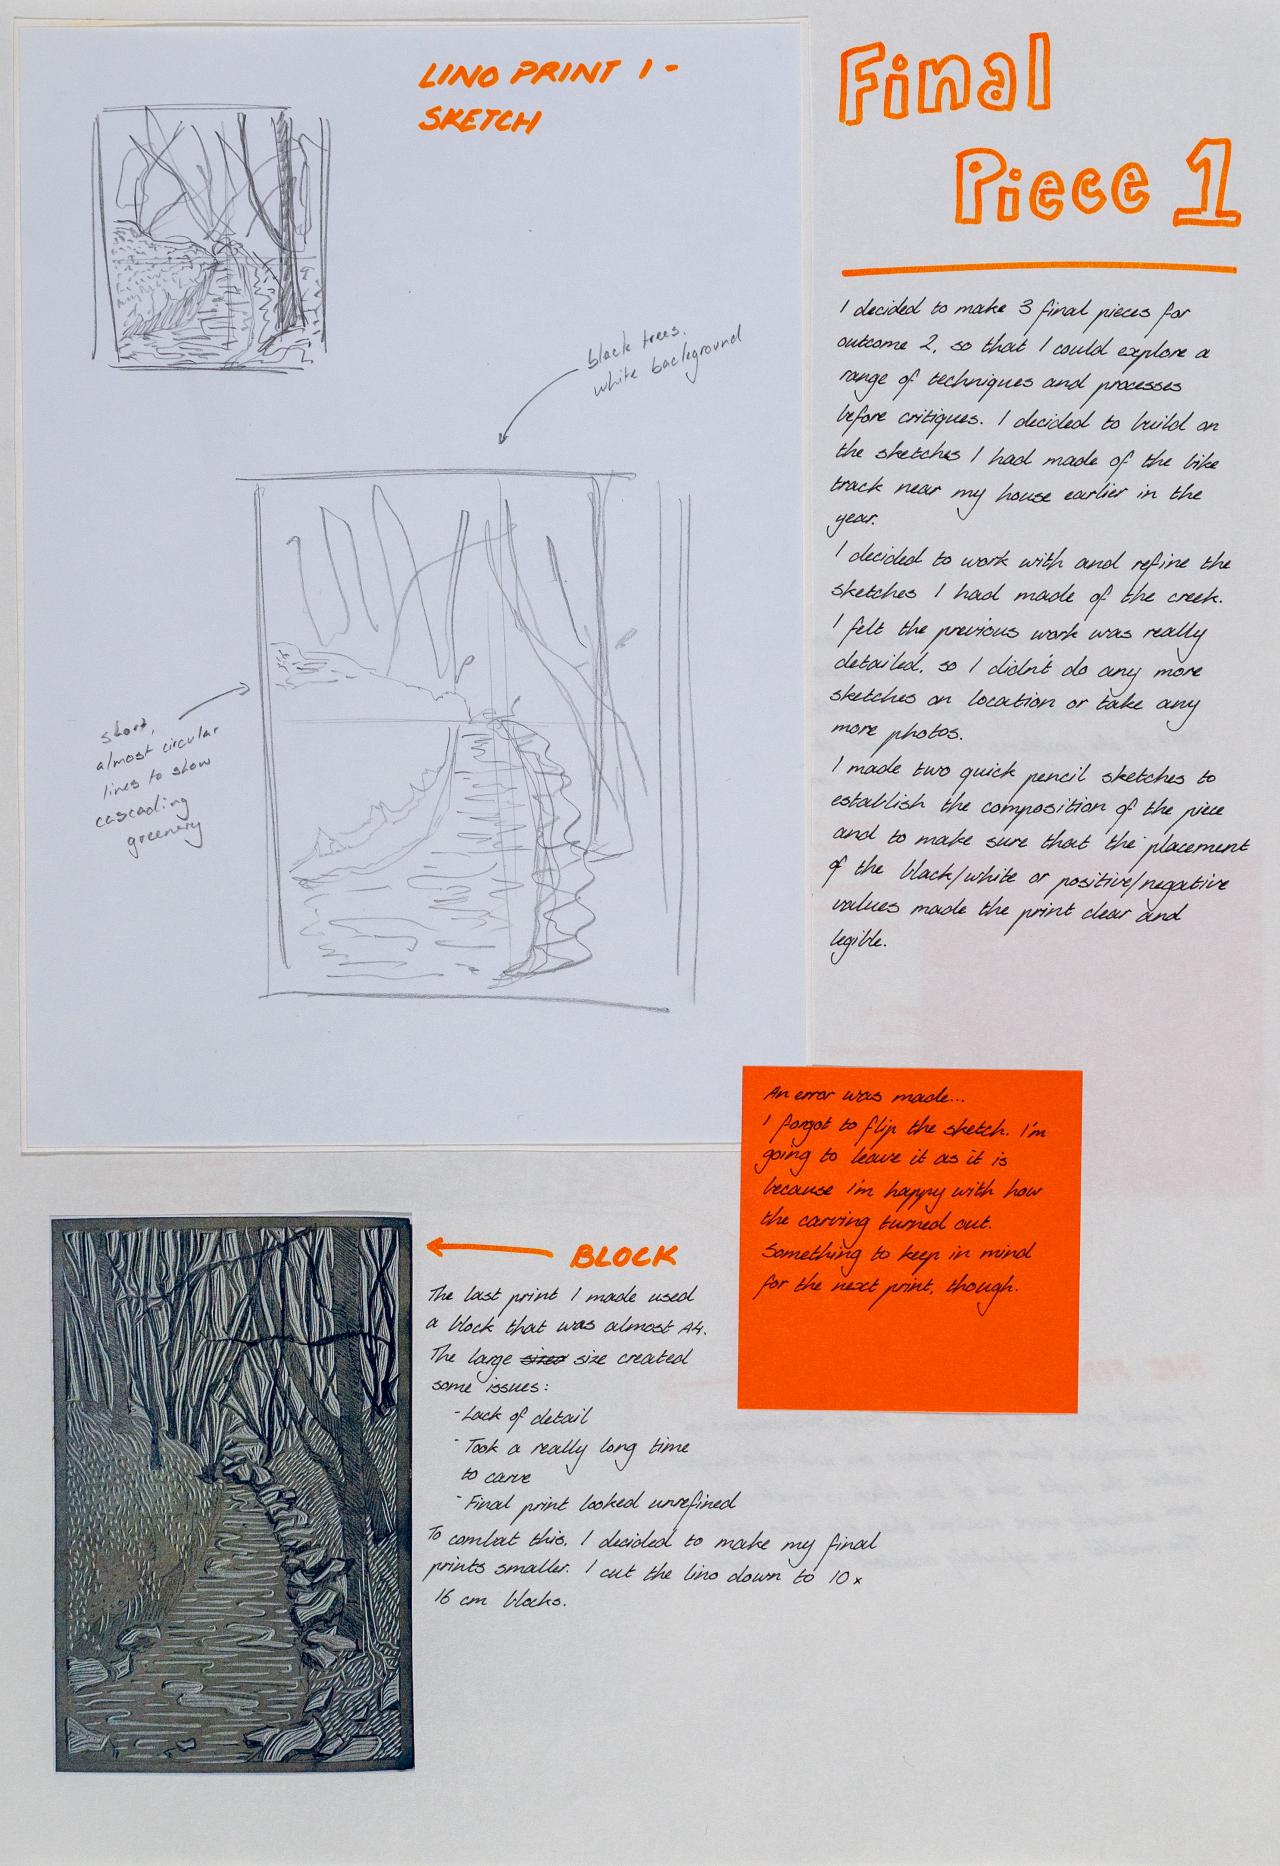 LINO PRINT 1 -
SKETCH
black trees.
white background
short,
almost circular
lines to show
cascading
greenery
Final
Piece 1
I decided to make 3 final pieces for
outcome 2, so that I could explore a
range of techniques and processes
before critiques. I decided to build on
the sketches I had made of the bike
track near my house earlier in the
year.
I decided to work with and refine the
sketches I had made of the creek.
I felt the previous work was really
detailed, so I didn't do any more
sketches on location or take any
more photos.
I made two quick pencil sketches to
establish the composition of the piece
and to make sure that the placement
of the black/white or positive/negative
values made the print clear and
legible.
An error was made...
I forgot to flip the sketch. I'm
going to leave it as it is
because i'm happy with how
the carving turned out.
Something to keep in mind
for the next print, though.
BLOCK
The last print I made used
a block that was almost A4.
The large sizes size created
some issues:
- Lack of detail
- Took a really long time
to carve
- Final print looked unrefined
To combat this, I decided to make my final
prints smaller. I cut the lino down to 10 x
16 cm blocks.